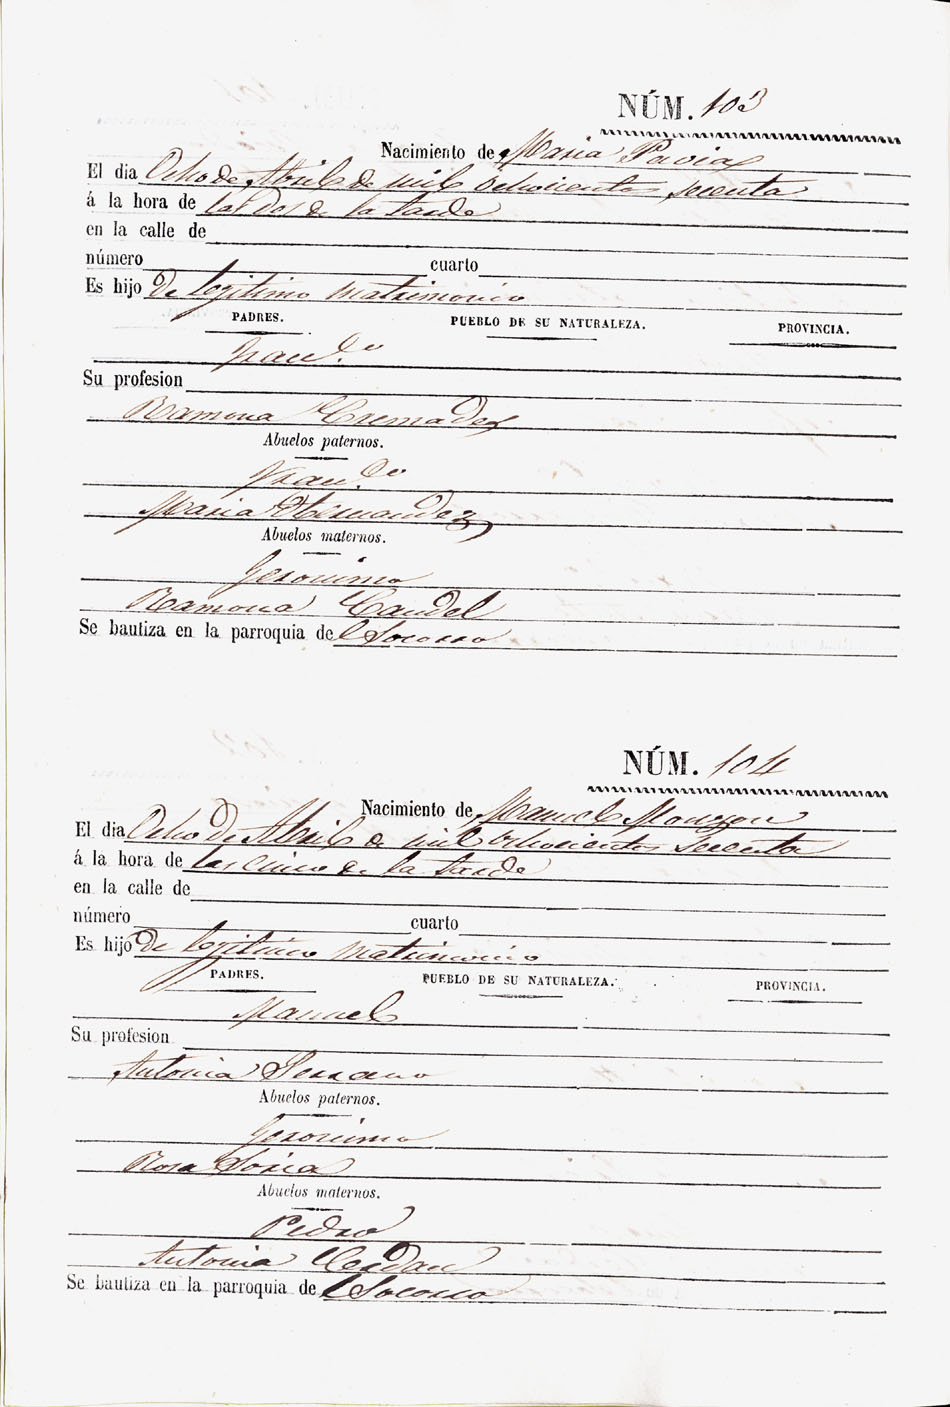 NÚM. 103
Nacimiento de Maria Pavia
El dia Ocho de Abril de mil ochocientos secenta
á la hora de las dos de la tarde
en la calle de
número cuarto
Es hijo de legitimo matrimonio
PADRES. PUEBLO DE SU NATURALEZA. PROVINCIA.
Fran.co
Su profesion
Ramona Cremades
Abuelos paternos.
Fran.co
Maria Hernandez
Abuelos maternos.
Geronimo
Ramona Candel
Se bautiza en la parroquia del Socorro
NÚM. 104
Nacimiento de Manuel Monzon
El dia Ocho de Abril de mil ochocientos secenta
á la hora de las cinco de la tarde
en la calle de
número cuarto
Es hijo de legitimo matrimonio
PADRES. PUEBLO DE SU NATURALEZA. PROVINCIA.
Manuel
Su profesion
Antonia Serrano
Abuelos paternos.
Geronimo
Rosa Soria
Abuelos maternos.
Pedro
Antonia Cerdan
Se bautiza en la parroquia del Socorro